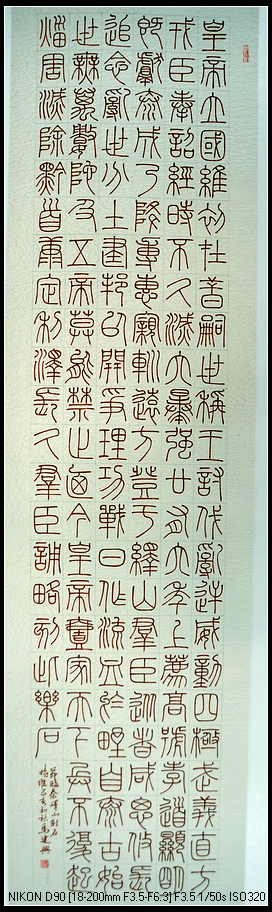 皇帝立國維初在昔嗣世稱王討伐亂逆威動四極武義直方
戎臣奉詔經時不久滅六暴強廿有六年上薦高號孝道顯明
既獻泰成乃降專惠寴巡遠方登于繹山羣臣從者咸思攸長
追念亂世分土建邦以開爭理功戰日作流血於野自泰古始
世無萬數陀及五帝莫能禁止廼今皇帝壹家天下兵不復起
災害滅除黔首康定利澤長久羣臣誦略刻此樂石
節臨秦嶧山刻石
初秋馬建興
NIKON D90 [18-200mm F3.5-F5.6] F3.5 1/50s ISO320